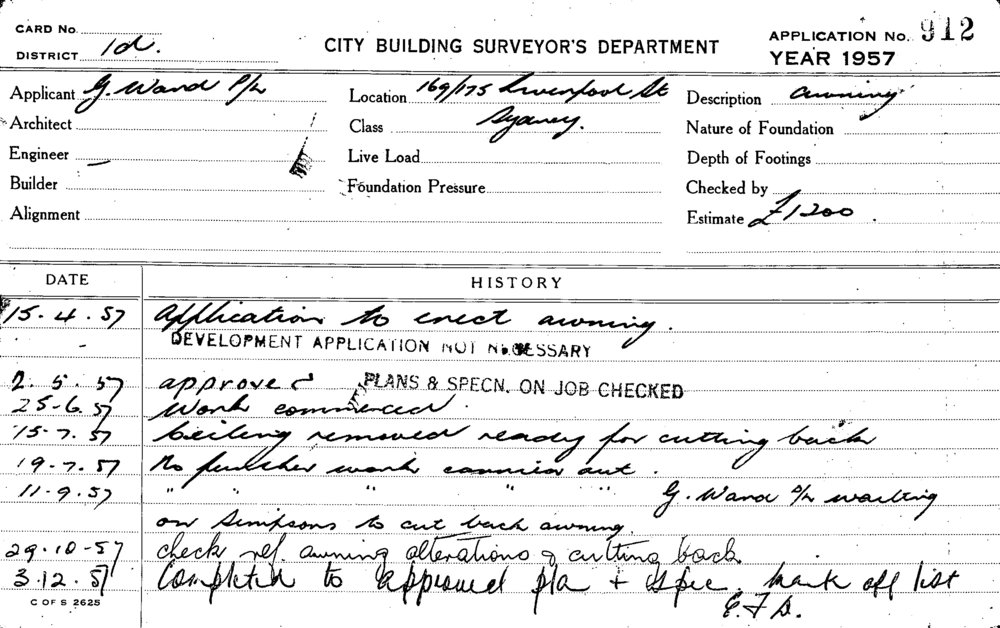 CARD No.
DISTRICT 1d.
CITY BUILDING SURVEYOR'S DEPARTMENT
APPLICATION No. 912
YEAR 1957
Applicant G. Ward P/L
Location 169/175 Liverpool St
Description awning
Architect
Class Sydney.
Nature of Foundation
Engineer —
Live Load
Depth of Footings
Builder
Foundation Pressure
Checked by
Alignment
Estimate £1200.
DATE HISTORY
15.4.57 Application to erect awning.
DEVELOPMENT APPLICATION NOT NECESSARY
2.5.57 approved PLANS & SPECN. ON JOB CHECKED
25-6.57 Work commenced.
15-7.57 Ceiling removed ready for cutting back
19-7.57 No further work carried out.
11-9.57 " " " " " G. Ward P/L waiting
on Simpsons to cut back awning.
29.10-57 check ref. awning alterations & cutting back
3.12.57 Completed to Approved pla + spec. mark off list
E.F.D.
C OF S 2625